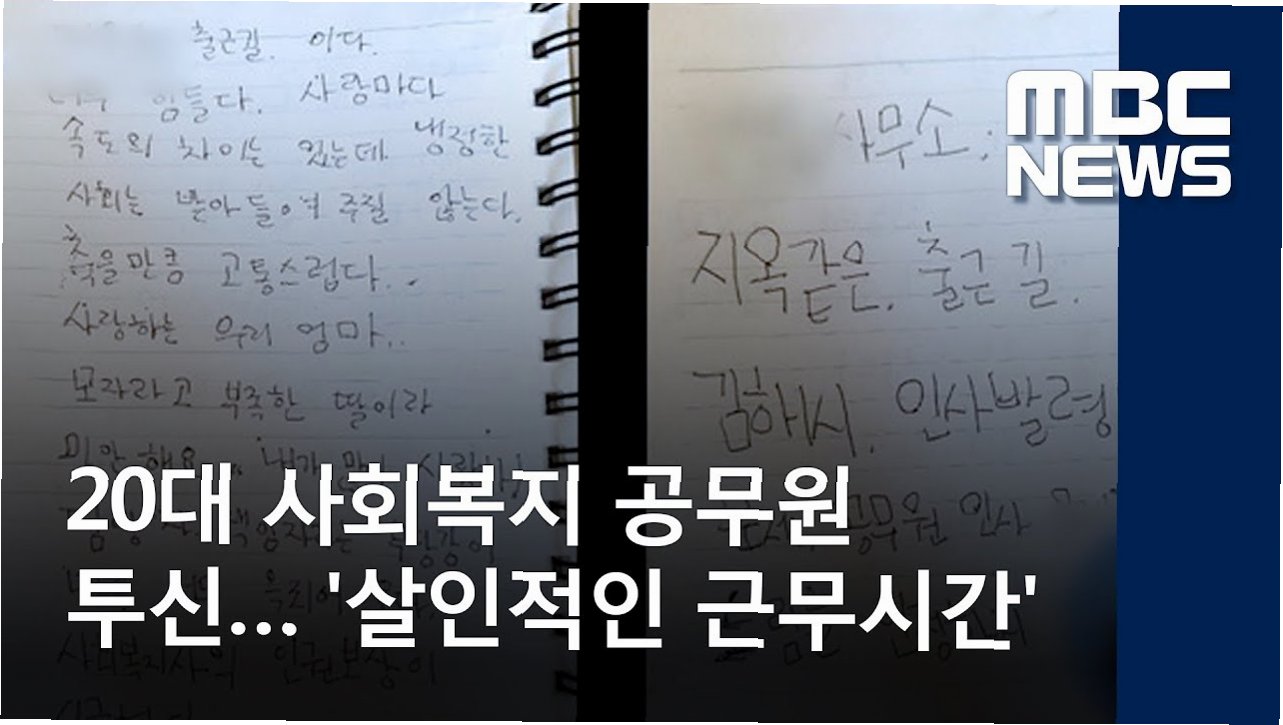 출근길. 이다.
힘들다. 사람마다
속도의 차이는 있는데 냉정한
사회는 받아들여 주질 않는다.
죽을만큼 고통스럽다..
사랑하는 우리 엄마..
모자라고 부족한 딸이라
미안해요
사회복지사의 인권보장이
사무소.
지옥같은. 출근길.
김해시. 인사발령
공무원 인사
MBC
NEWS
20대 사회복지 공무원
투신... '살인적인 근무시간'